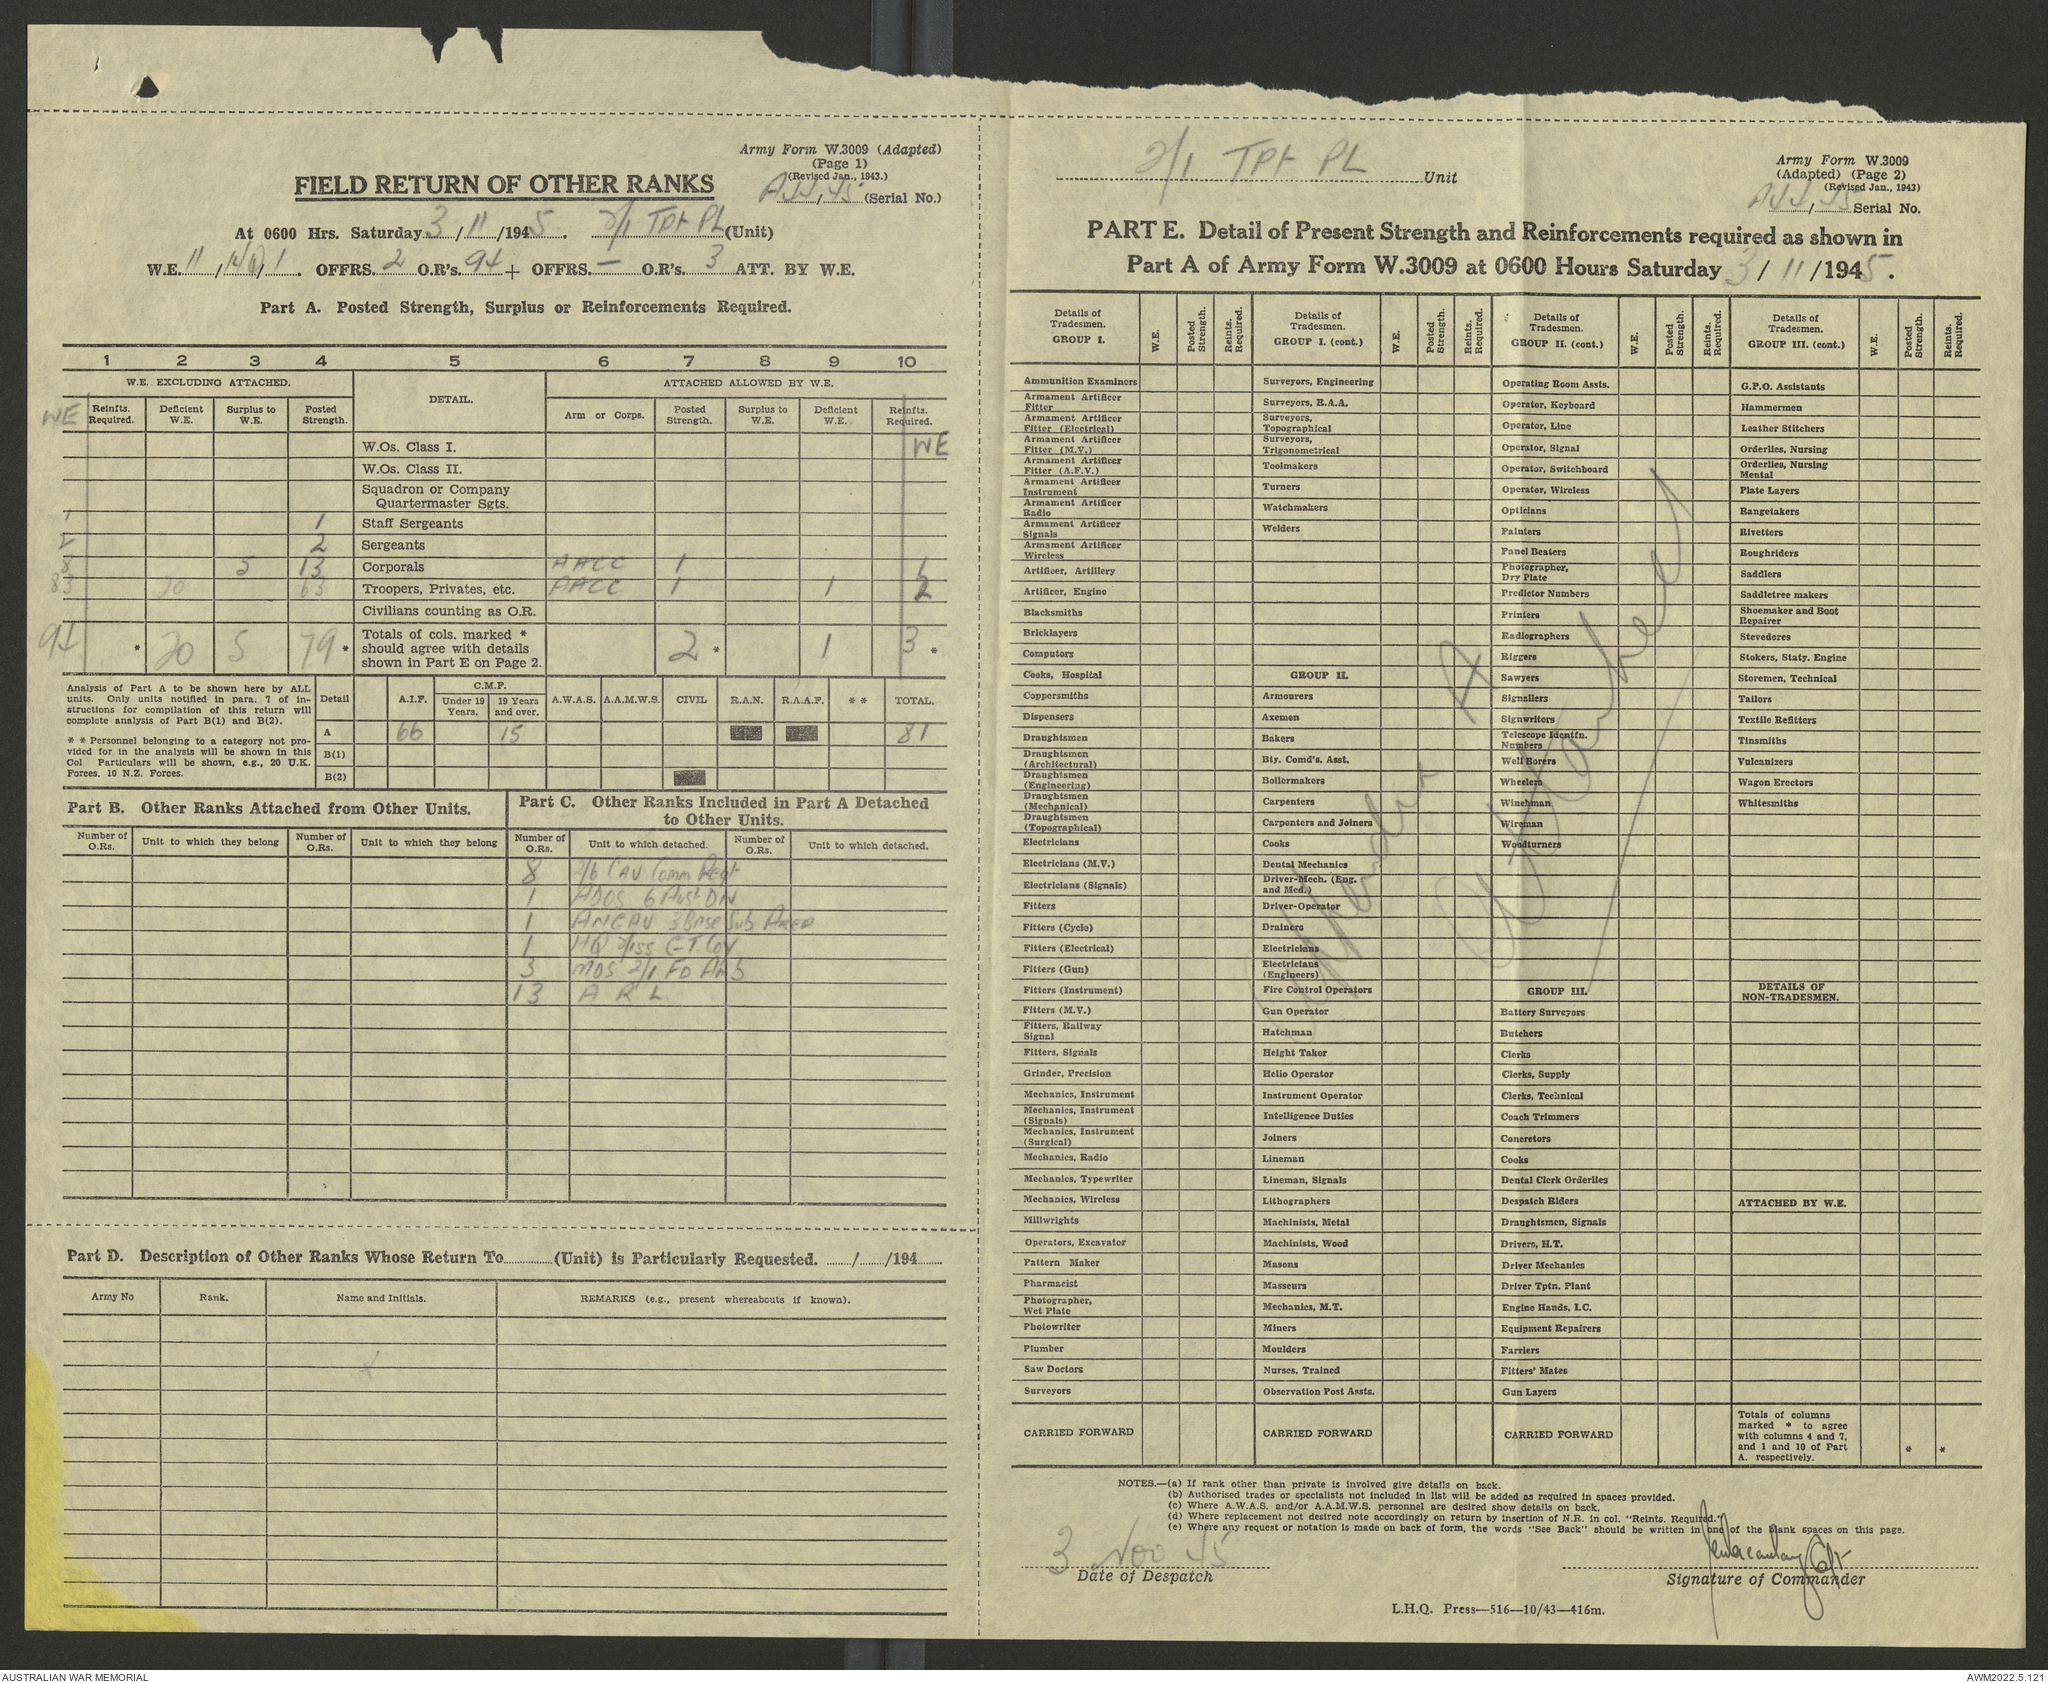 Army Form W.3009 (Adapted)
(Page 1)
(Revised Jan., 1943.)
(Serial No.)
FIELD RETURN OF OTHER RANKS
At 0600 Hrs. Saturday 3/11/1945. 2/1 TPt PL (Unit)
W.E. 11 / 1. OFFRS. 2 O.R's. 94 + OFFRS. — O.R's. 3 ATT. BY W.E.
Part A. Posted Strength, Surplus or Reinforcements Required.
1 2 3 4 5 6 7 8 9 10
W.E. EXCLUDING ATTACHED. DETAIL. ATTACHED ALLOWED BY W.E.
WE Reinfts. Required. Deficient W.E. Surplus to W.E. Posted Strength. Arm or Corps. Posted Strength. Surplus to W.E. Deficient W.E. Reinfts. Required.
W.Os. Class I. WE
W.Os. Class II.
Squadron or Company
Quartermaster Sgts.
1 1 Staff Sergeants
2 2 Sergeants
8 5 13 Corporals AACC 1 1
83 20 63 Troopers, Privates, etc. AACC 1 1 2
Civilians counting as O.R.
94 * 20 5 79 * Totals of cols. marked * should agree with details shown in Part E on Page 2. 2 * 1 3 *
Analysis of Part A to be shown here by ALL units. Only units notified in para. 7 of instructions for compilation of this return will complete analysis of Part B(1) and B(2).
* * Personnel belonging to a category not provided for in the analysis will be shown in this Col Particulars will be shown, e.g., 20 U.K. Forces, 10 N.Z. Forces.
Detail A.I.F. C.M.F. Under 19 Years. 19 Years and over. A.W.A.S. A.A.M.W.S. CIVIL R.A.N. R.A.A.F. * * TOTAL.
A 66 15 81
B(1)
B(2)
Part B. Other Ranks Attached from Other Units.
Number of O.Rs. Unit to which they belong Number of O.Rs. Unit to which they belong
Part C. Other Ranks Included in Part A Detached to Other Units.
Number of O.Rs. Unit to which detached. Number of O.Rs. Unit to which detached.
8 2/6 CAV Comm Regt
1 ADOS 6 Aust DIV
1 ANGAU 3 Base Sub AREA
1 HQ 2/155 GT Coy
3 MDS 2/1 FD Amb
13 A R L
Part D. Description of Other Ranks Whose Return To (Unit) is Particularly Requested. / /194
Army No Rank. Name and Initials. REMARKS (e.g., present whereabouts if known).
2/1 TPt PL Unit
Army Form W.3009
(Adapted) (Page 2)
(Revised Jan., 1943)
Serial No.
PART E. Detail of Present Strength and Reinforcements required as shown in
Part A of Army Form W.3009 at 0600 Hours Saturday 3/11/1945.
Details of Tradesmen. GROUP I. W.E. Posted Strength. Reints. Required.
Ammunition Examiners
Armament Artificer Fitter
Armament Artificer Fitter (Electrical)
Armament Artificer Fitter (M.V.)
Armament Artificer Fitter (A.F.V.)
Armament Artificer Instrument
Armament Artificer Radio
Armament Artificer Signals
Armament Artificer Wireless
Artificer, Artillery
Artificer, Engine
Blacksmiths
Bricklayers
Computors
Cooks, Hospital
Coppersmiths
Dispensers
Draughtsmen
Draughtsmen (Architectural)
Draughtsmen (Engineering)
Draughtsmen (Mechanical)
Draughtsmen (Topographical)
Electricians
Electricians (M.V.)
Electricians (Signals)
Fitters
Fitters (Cycle)
Fitters (Electrical)
Fitters (Gun)
Fitters (Instrument)
Fitters (M.V.)
Fitters, Railway Signal
Fitters, Signals
Grinder, Precision
Mechanics, Instrument
Mechanics, Instrument (Signals)
Mechanics, Instrument (Surgical)
Mechanics, Radio
Mechanics, Typewriter
Mechanics, Wireless
Millwrights
Operators, Excavator
Pattern Maker
Pharmacist
Photographer, Wet Plate
Photowriter
Plumber
Saw Doctors
Surveyors
CARRIED FORWARD
Details of Tradesmen. GROUP I. (cont.) W.E. Posted Strength. Reints. Required.
Surveyors, Engineering
Surveyors, R.A.A.
Surveyors, Topographical
Surveyors, Trigonometrical
Toolmakers
Turners
Watchmakers
Welders
GROUP II.
Armourers
Axemen
Bakers
Bty. Comd's. Asst.
Boilermakers
Carpenters
Carpenters and Joiners
Cooks
Dental Mechanics
Driver-Mech. (Eng. and Med.)
Driver-Operator
Drainers
Electricians
Electricians (Engineers)
Fire Control Operators
Gun Operator
Hatchman
Height Taker
Helio Operator
Instrument Operator
Intelligence Duties
Joiners
Lineman
Lineman, Signals
Lithographers
Machinists, Metal
Machinists, Wood
Masons
Masseurs
Mechanics, M.T.
Miners
Moulders
Nurses, Trained
Observation Post Assts.
CARRIED FORWARD
Details of Tradesmen. GROUP II. (cont.) W.E. Posted Strength. Reints. Required.
Operating Room Assts.
Operator, Keyboard
Operator, Line
Operator, Signal
Operator, Switchboard
Operator, Wireless
Opticians
Painters
Panel Beaters
Photographer, Dry Plate
Predictor Numbers
Printers
Radiographers
Riggers
Sawyers
Signallers
Signwriters
Telescope Identfn. Numbers
Well Borers
Wheelers
Winchman
Wireman
Woodturners
GROUP III.
Battery Surveyors
Butchers
Clerks
Clerks, Supply
Clerks, Technical
Coach Trimmers
Concretors
Cooks
Dental Clerk Orderlies
Despatch Riders
Draughtsmen, Signals
Drivers, H.T.
Driver Mechanics
Driver Tptn. Plant
Engine Hands, I.C.
Equipment Repairers
Farriers
Fitters' Mates
Gun Layers
CARRIED FORWARD
Details of Tradesmen. GROUP III. (cont.) W.E. Posted Strength. Reints. Required.
G.P.O. Assistants
Hammermen
Leather Stitchers
Orderlies, Nursing
Orderlies, Nursing Mental
Plate Layers
Rangetakers
Rivetters
Roughriders
Saddlers
Saddletree makers
Shoemaker and Boot Repairer
Stevedores
Stokers, Staty. Engine
Storemen, Technical
Tailors
Textile Refitters
Tinsmiths
Vulcanizers
Wagon Erectors
Whitesmiths
DETAILS OF NON-TRADESMEN.
ATTACHED BY W.E.
Totals of columns marked * to agree with columns 4 and 7, and 1 and 10 of Part A. respectively. * *
Appendix A attached
NOTES.—(a) If rank other than private is involved give details on back.
(b) Authorised trades or specialists not included in list will be added as required in spaces provided.
(c) Where A.W.A.S. and/or A.A.M.W.S. personnel are desired show details on back.
(d) Where replacement not desired note accordingly on return by insertion of N.R. in col. "Reints. Required."
(e) Where any request or notation is made on back of form, the words "See Back" should be written in one of the blank spaces on this page.
3 Nov 45
Date of Despatch
Signature of Commander
L.H.Q. Press—516—10/43—416m.
AUSTRALIAN WAR MEMORIAL
AWM2022.5.121